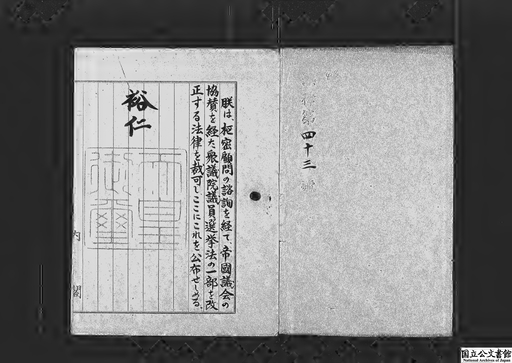 第四十三號
朕は、枢密顧問の諮詢を経て、帝國議会の
協賛を経た衆議院議員選挙法の一部を改
正する法律を裁可し、ここにこれを公布せしめる。
裕仁
天皇
御璽
内閣
国立公文書館
National Archives of Japan